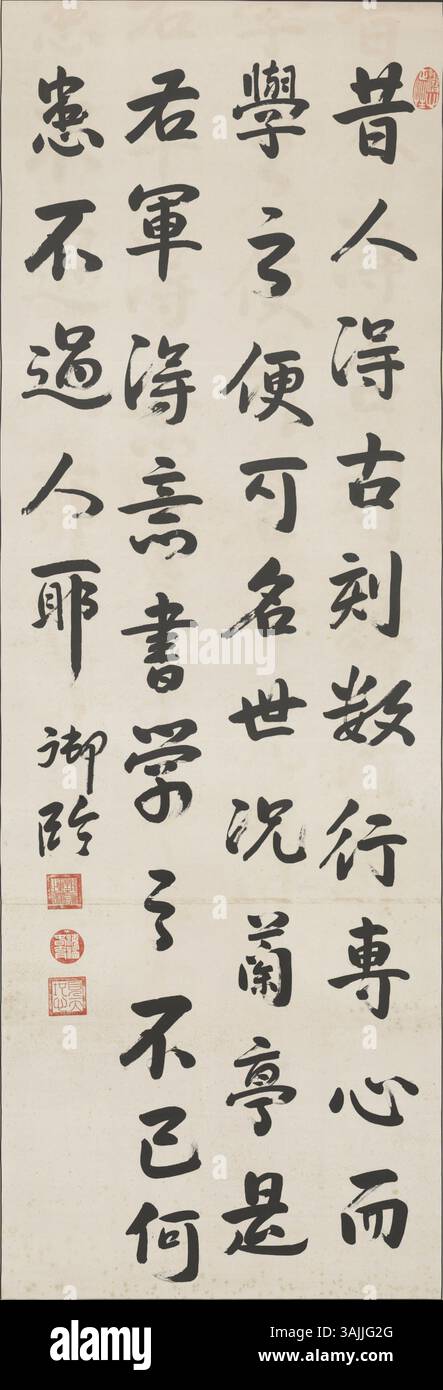 昔人得古刻数行専心而
學之便可名世況蘭亭是
右軍得意書学之不已何
患不過人耶
御臨
alamy
alamy
Image ID: 3AJJG2G
www.alamy.com